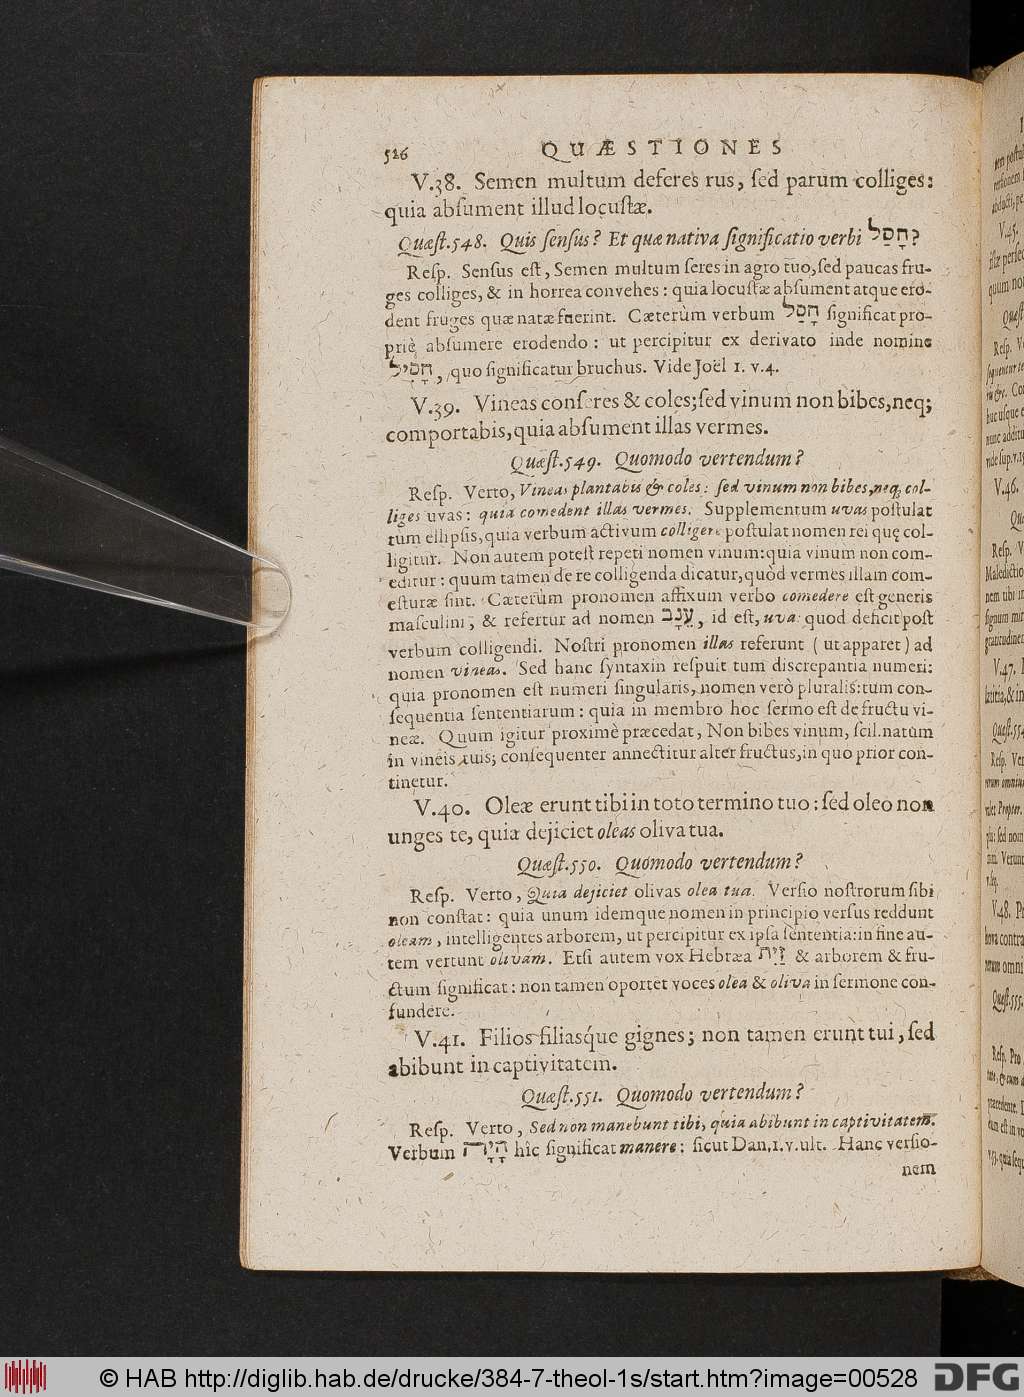 526 QUÆSTIONES
V.38. Semen multum deferes rus, ſed parum colliges:
quia abſument illud locuſtæ.
Quæſt.548. Quis ſenſus? Et quæ nativa ſignificatio verbi חָסַל?
Reſp. Senſus eſt, Semen multum ſeres in agro tuo, ſed paucas fru-
ges colliges, & in horrea convehes: quia locuſtæ abſument atque ero-
dent fruges quæ natæ fuerint. Cæterùm verbum חָסַל ſignificat pro-
priè abſumere erodendo: ut percipitur ex derivato inde nomine
חָסִיל, quo ſignificatur bruchus. Vide Joël 1. v.4.
V.39. Vineas conſeres & coles; ſed vinum non bibes, neq;
comportabis, quia abſument illas vermes.
Quæſt.549. Quomodo vertendum?
Reſp. Verto, Vineas plantabis & coles: ſed vinum non bibes, neq; col-
liges uvas: quia comedent illas vermes. Supplementum uvas poſtulat
tum ellipſis, quia verbum activum colligere poſtulat nomen rei quę col-
ligitur. Non autem poteſt repeti nomen vinum: quia vinum non com-
editur: quum tamen de re colligenda dicatur, quòd vermes illam com-
eſturæ ſint. Cæterùm pronomen affixum verbo comedere eſt generis
maſculini, & refertur ad nomen עֵנָב, id eſt, uva: quod deficit poſt
verbum colligendi. Noſtri pronomen illas referunt (ut apparet) ad
nomen vineas. Sed hanc ſyntaxin reſpuit tum diſcrepantia numeri:
quia pronomen eſt numeri ſingularis, nomen verò pluralis: tum con-
ſequentia ſententiarum: quia in membro hoc ſermo eſt de fructu vi-
neæ. Quum igitur proximè præcedat, Non bibes vinum, ſcil. natùm
in vineis tuis; conſequenter annectitur alter fructus, in quo prior con-
tinetur.
V.40. Oleæ erunt tibi in toto termino tuo: ſed oleo non
unges te, quia dejiciet oleas oliva tua.
Quæſt.550. Quomodo vertendum?
Reſp. Verto, Quia dejiciet olivas olea tua. Verſio noſtrorum ſibi
non conſtat: quia unum idemque nomen in principio verſus reddunt
oleam, intelligentes arborem, ut percipitur ex ipſa ſententia: in fine au-
tem vertunt olivam. Etſi autem vox Hebræa זַיִת & arborem & fru-
ctum ſignificat: non tamen oportet voces olea & oliva in ſermone con-
fundere.
V.41. Filios filiasq́ue gignes; non tamen erunt tui, ſed
abibunt in captivitatem.
Quæſt.551. Quomodo vertendum?
Reſp. Verto, Sed non manebunt tibi, quia abibunt in captivitatem.
Verbum הָיָה hîc ſignificat manere: ſicut Dan.1.v.ult. Hanc verſio-
nem
© HAB http://diglib.hab.de/drucke/384-7-theol-1s/start.htm?image=00528
DFG